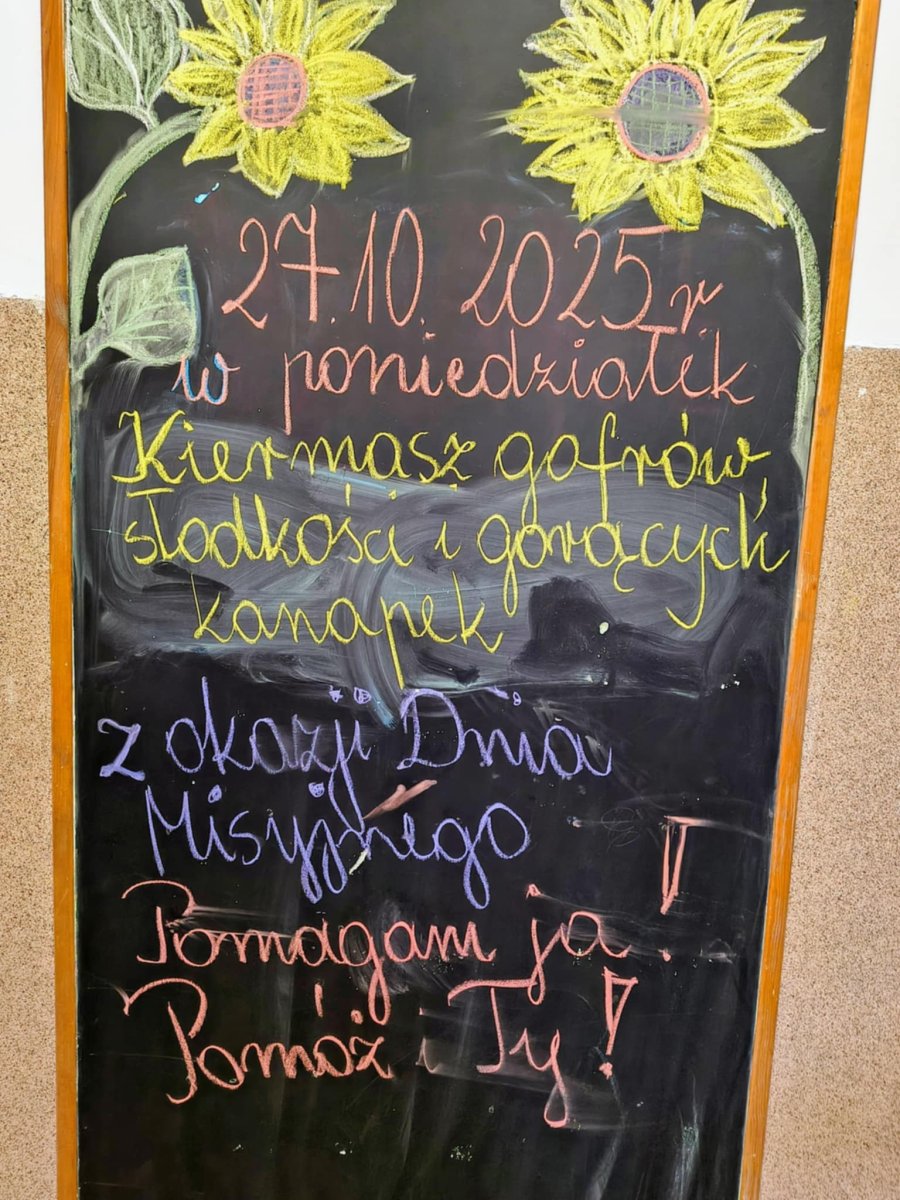 27.10.2025 r
w poniedziałek
Kiermasz gofrów
słodkości i gorących
kanapek
z okazji Dnia
Misyjnego
Pomagam ja!
Pomóż i Ty!